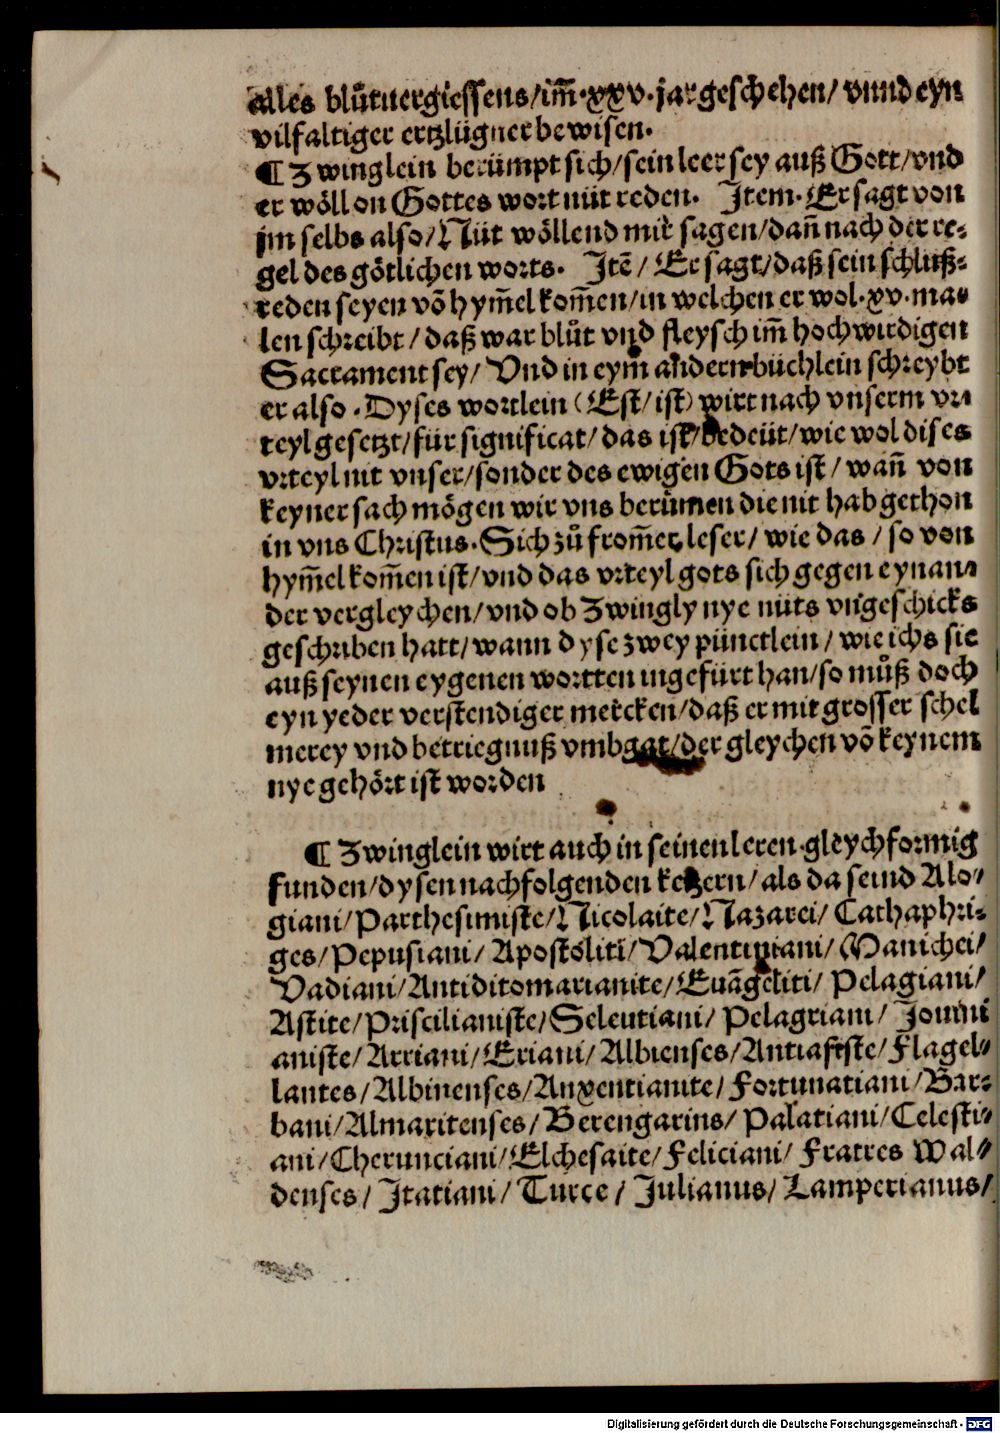 alles blůtuergiessens/im̃.xxv.jar geschehen/ vnnd eyn
vilfaltiger ertzlügner bewisen.
¶ Zwinglein berümpt sich/sein leer sey auß Gott/vnd
er wöll on Gottes wort nüt reden. Item. Er sagt von
jm selbs also/Nüt wöllend mir sagen/dañ nach der re-
gel des götlichen worts. Itē/ Er sagt/daß sein schluß-
reden seyen võ hym̃el kom̃en/in welchen er wol.xv.ma-
len schreibt/daß war blůt vnd fleysch im̃ hochwirdigen
Sacrament sey/ Vnd in eym̃ andern büchlein schreybt
er also. Dyses wortlein (Est/ist) wirt nach vnserm vr-
teyl gesetzt/für significat/das ist/bedeüt/wie wol dises
vrteyl nit vnser/sonder des ewigen Gots ist/ wañ von
keyner sach mögen wir vns berůmen die nit hab gethon
in vns Christus. Sich zů from̃er leser/ wie das/so von
hym̃el kom̃en ist/vnd das vrteyl gots sich gegen eynan-
der vergleychen/vnd ob Zwingly nye nüts vngeschicks
geschriben hatt/wann dyse zwey pünctlein/wie ichs sie
auß seynen eygenen wortten ingefürt han/so můß doch
eyn yeder verstendiger mercken/daß er mit grosser schel
merey vnd betriegnuß vmbgat/der gleychen võ keynem
nye gehört ist worden
¶ Zwinglein wirt auch in seinen leren gleychformig
funden/dysen nachfolgenden ketzern/als da seind Alo-
giani/Parthesimiste/Nicolaite/Nazarei/ Cathaphri-
ges/Pepusiani/Apostoliti/Valentiniani/Manichei/
Vadiani/Antiditomarianite/Euãgeliti/ Pelagiani/
Astite/Priscilianiste/Seleutiani/ Pelagriani/ Jouini
aniste/Arriani/Eriani/Albienses/Antiafiste/Flagel-
lantes/Albinenses/Auxentianite/Fortunatiani/Bar-
bani/Almaritenses/Berengarius/ Palatiani/Celesti-
ani/Cherunciani/Elchesaite/Feliciani/ Fratres Wal-
denses/Itatiani/ Turce/ Julianus/ Lamperianus/
Digitalisierung gefördert durch die Deutsche Forschungsgemeinschaft - DFG